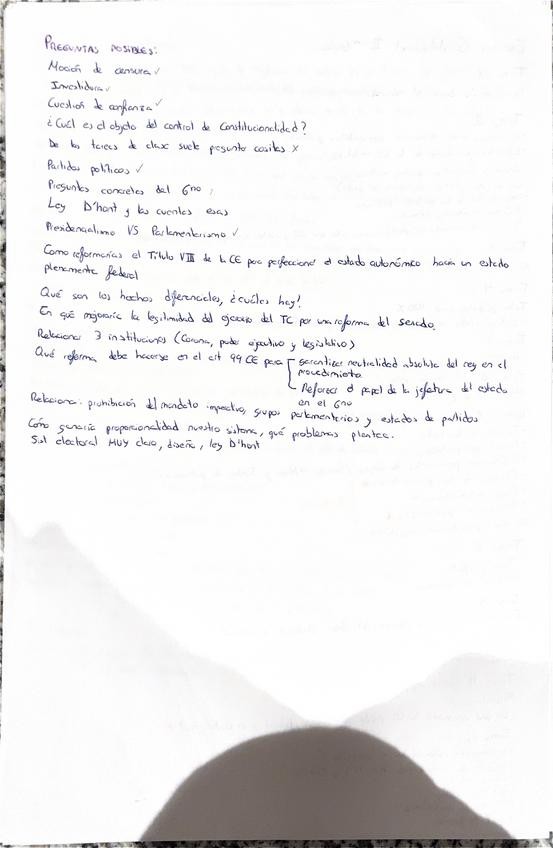 PREGUNTAS POSIBLES:
Moción de censura ✓
Investidura ✓
Cuestión de confianza ✓
¿Cuál es el objeto del control de Constitucionalidad?
De las tareas de clase suele pregunta cositas x
Partidos políticos ✓
Preguntas concretas del Gno
Ley D'hont y las cuentas esas
Presidencialismo VS Parlamentarismo ✓
Como reformarías el Título VIII de la CE para perfeccionar el estado autonómico hacia un estado
plenamente federal
Qué son los hechos diferenciales, ¿cuáles hay!
En qué mejoraría la legitimidad del ejercicio del TC por una reforma del senado.
Relacionar 3 instituciones (Corona, poder ejecutivo y legislativo)
Qué reforma debe hacerse en el art 99 CE para garantizar neutralidad absoluta del rey en el
procedimiento
Reforzar el papel de la jefatura del estado
en el Gno
Relaciona: prohibición del mandato imperativo, grupos parlamentarios y estados de partidos
Cómo ganaría proporcionalidad nuestro sistema, qué problemas plantea.
Sist electoral MUY claro, diseña, ley D'hont